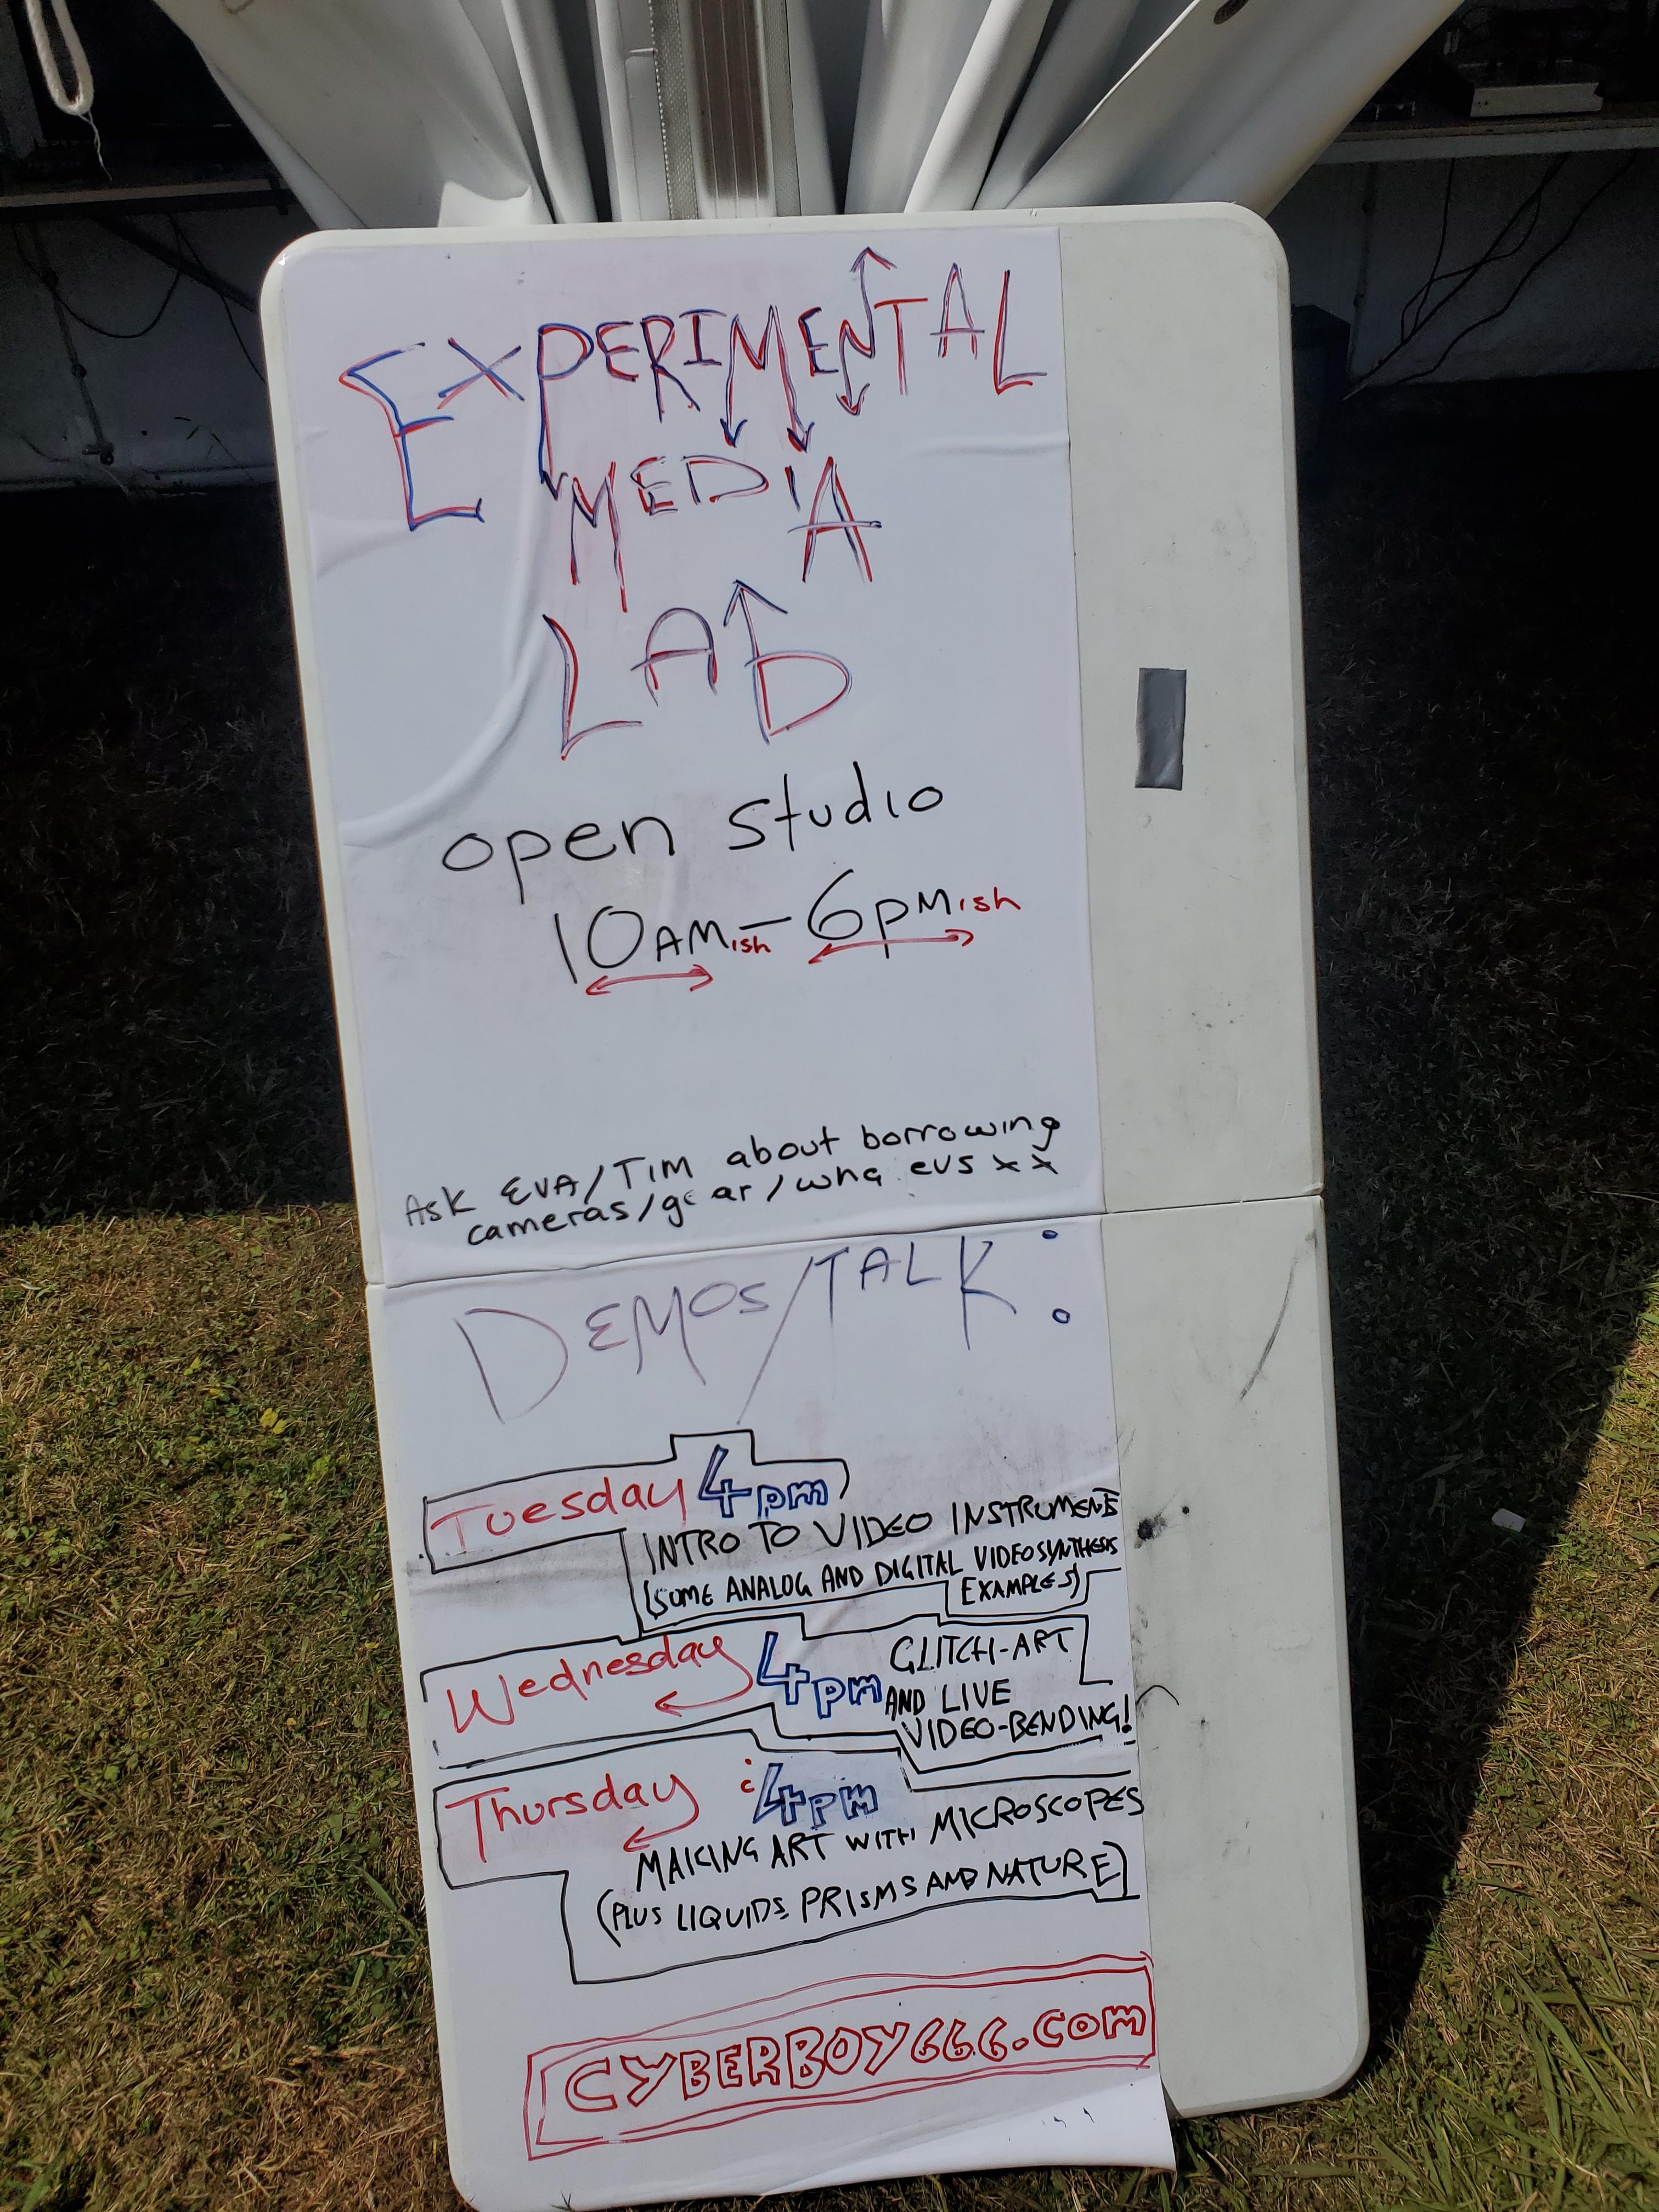 EXPERIMENTAL
MEDIA
LAB
open studio
10AMish - 6pMish
Ask EVA/TIM about borrowing
cameras/gear/wha evs x x
DEMOS/TALK:
Tuesday 4pm
INTRO TO VIDEO INSTRUMENTS
(SOME ANALOG AND DIGITAL VIDEOSYNTHESIS
EXAMPLES)
Wednesday 4pm GLITCH-ART
AND LIVE
VIDEO-BENDING!
Thursday : 4pm
MAKING ART WITH MICROSCOPES
(PLUS LIQUIDS PRISMS AND NATURE)
CYBERBOY666.COM